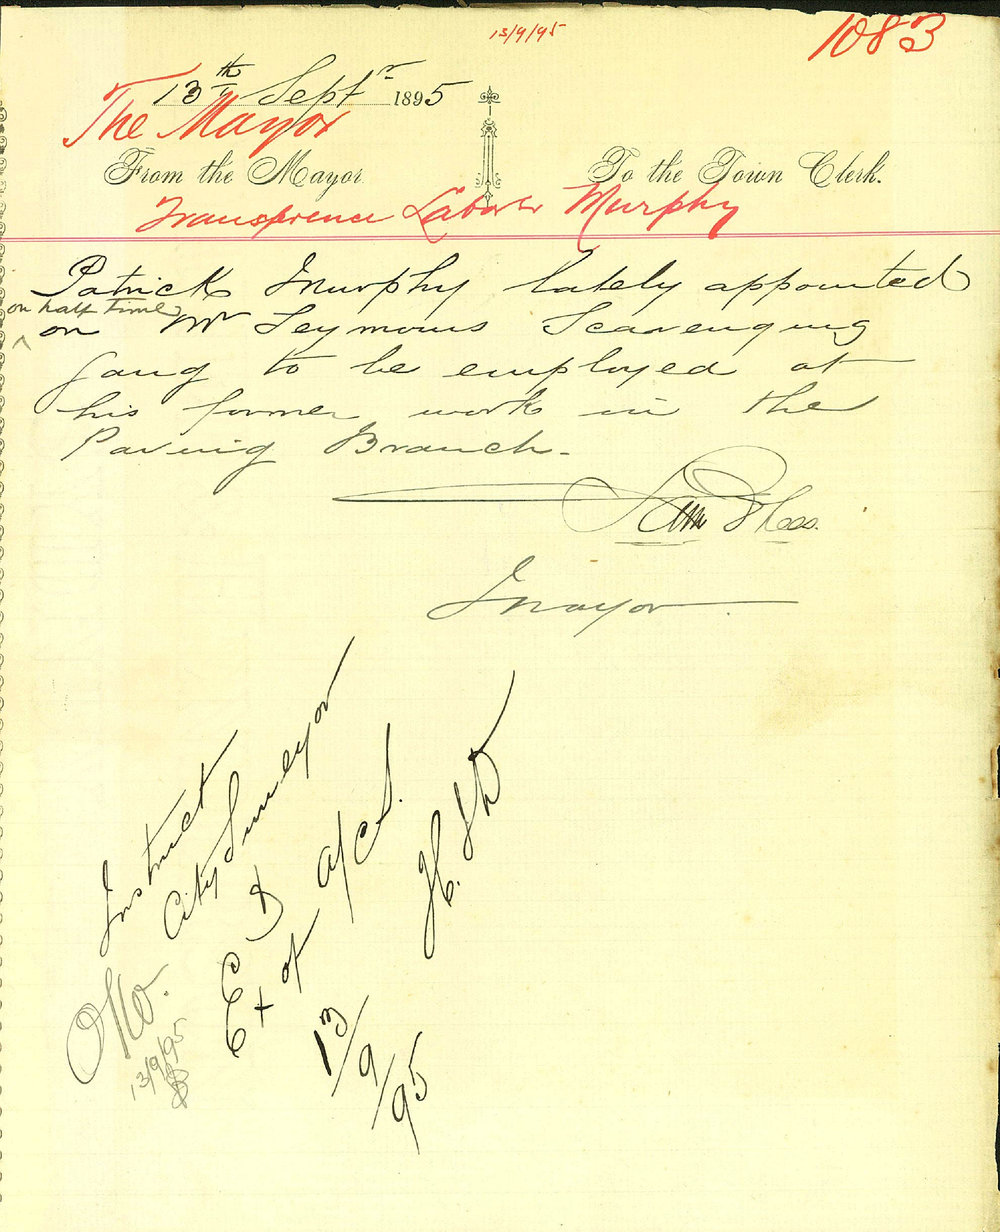 13/9/95
1083
13th Septr 1895
The Mayor
From the Mayor. To the Town Clerk.
Laborer Murphy
Patrick Murphy lately appointed
on half time
on Mr Seymours Scavenging
Gang to be employed at
his former work in the
Paving Branch.
Mayor
Instruct
City Surveyor
E D
+ of a/cs.
13/9/95
13/9/95